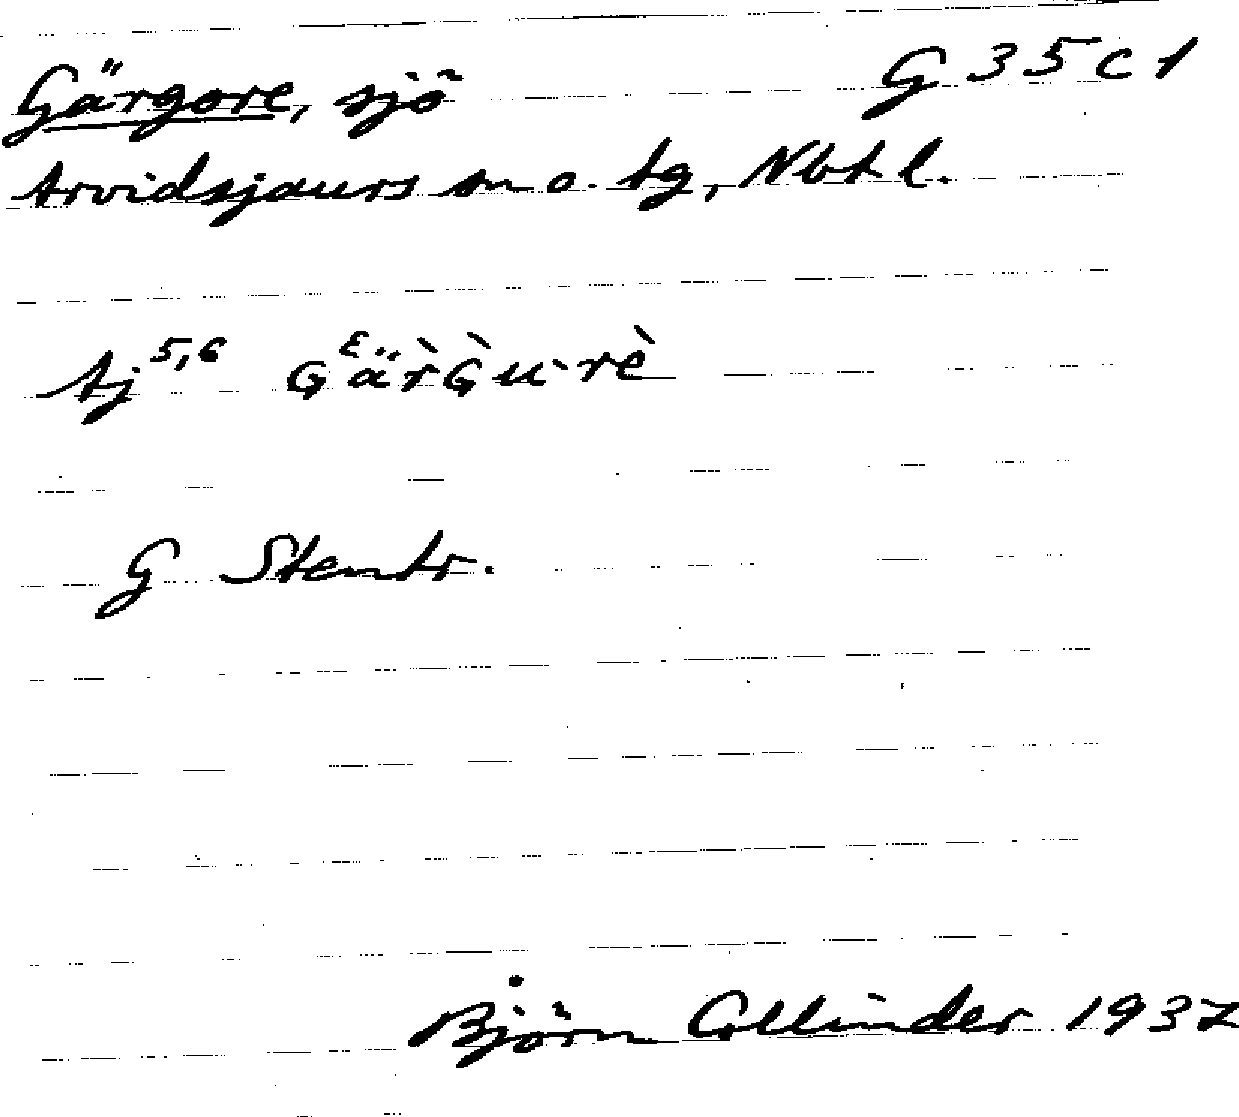 Gärgore, sjö G 35 c 1
Arvidsjaurs sn o. tg, Nbtl.
Aj 5,6
G Stentr.
Björn Collinder 1937